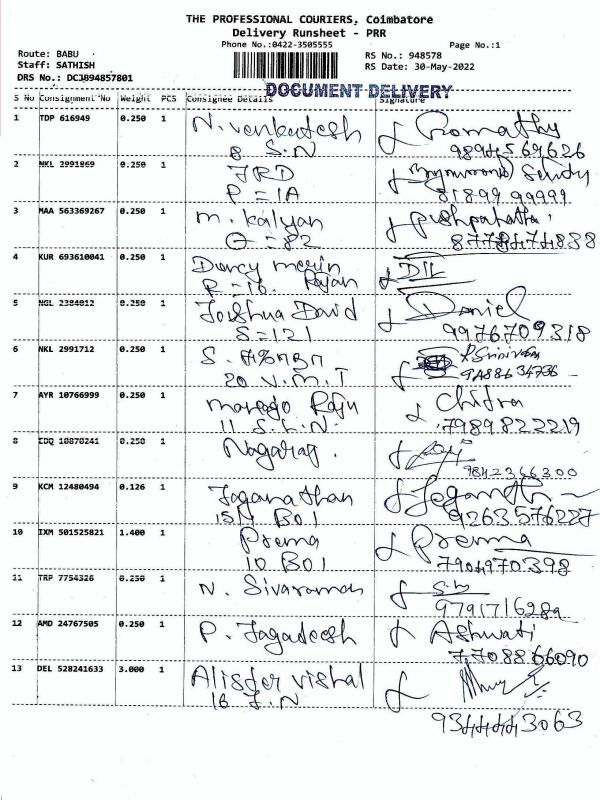 THE PROFESSIONAL COURIERS, Coimbatore
Delivery Runsheet - PRR
Phone No.:0422-3505555 Page No.:1
Route: BABU RS No.: 948578
Staff: SATHISH RS Date: 30-May-2022
DRS No.: DCJ894857801
DOCUMENT DELIVERY
S No Consignment No Weight PCS Consignee Details Signature
1 TDP 616949 0.250 1 N. Venkatesh
8 S.N
2 NKL 2991869 0.250 1 JRD
P = 1A 81899 99999
3 MAA 563369267 0.250 1 M. Kalyan
= 82
4 KUR 693610041 0.250 1 Darcy
R = 16. Rajan
5 NGL 2384012 0.250 1 Joshua David Daniel
S = 121 9976709318
6 NKL 2991712 0.250 1 S.
20 V.M.I
7 AYR 10766999 0.250 1 Raju Chitra
11 S.L.N 7989822219
8 EDQ 10870241 0.250 1 Nagaraj.
9842366300
9 KCM 12480494 0.126 1 Jaganathan
B01 9263576227
10 IXM 501525821 1.400 1 Prema Prema
10 B01 7904970398
11 TRP 7754326 0.250 1 N. Sivaraman
9791716289
12 AMD 24767505 0.250 1 P. Jagadeesh Ashwati
7708866090
13 DEL 528241633 3.000 1 Vishal
16 J.N
9344443063